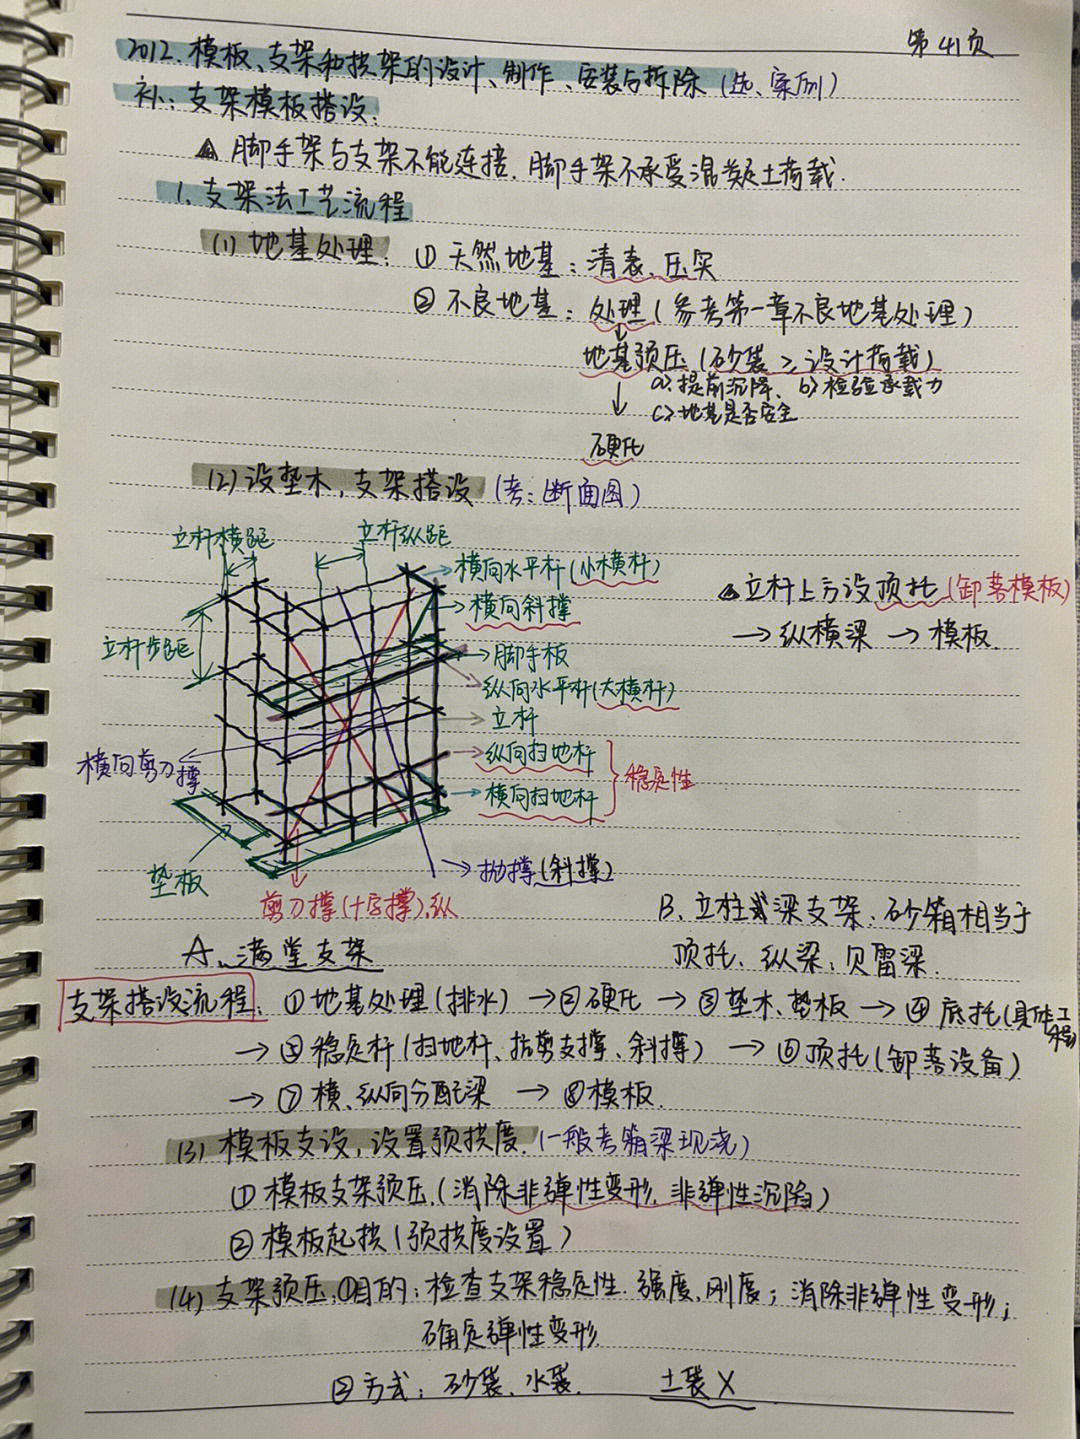 第41页
2012. 模板、支架和拱架的设计、制作、安装与拆除(选、案例)
补:支架模板搭设:
脚手架与支架不能连接. 脚手架不承受混凝土荷载.
1. 支架法工艺流程
(1) 地基处理: ① 天然地基:清表、压实
② 不良地基:处理(参考第一章不良地基处理)
地基预压(砂袋≥设计荷载)
a>提前沉降、b>检验承载力
c>地基是否安全
硬化
(2)设垫木,支架搭设(考:断面图)
立杆横距
立杆纵距
横向水平杆(小横杆)
横向斜撑
立杆上方设顶托(卸落模板)
→纵横梁→模板.
立杆步距
脚手板
纵向水平杆(大横杆)
立杆
横向剪刀撑
纵向扫地杆
稳定性
横向扫地杆
垫板
抛撑(斜撑)
剪刀撑(十字撑)纵
B、立柱式梁支架:砂箱相当于
A、满堂支架
顶托、纵梁:贝雷梁.
支架搭设流程:①地基处理(排水)→②硬化→③垫木、垫板→④底托(具体工程)
→⑤稳定杆(扫地杆、抗剪支撑、斜撑)→⑥顶托(卸落设备)
→⑦横、纵向分配梁→⑧模板.
(3)模板支设,设置预拱度.(一般考箱梁现浇)
①模板支架预压.(消除非弹性变形.非弹性沉陷)
②模板起拱(预拱度设置)
(4)支架预压:①目的:检查支架稳定性.强度、刚度;消除非弹性变形;
确定弹性变形.
②方式:砂袋、水袋. 土袋X